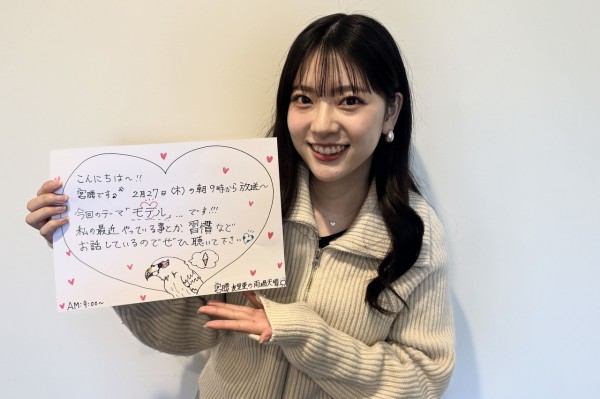 こんにちは〜!!
宮腰です♪ 2月27日(木)の朝9時から放送〜
今回のテーマ"モデル"...です!!!
私の最近やっている事とか、習慣など
お話しているのでぜひ聴いて下さい
AM:9:00〜
宮腰 の雨過天晴